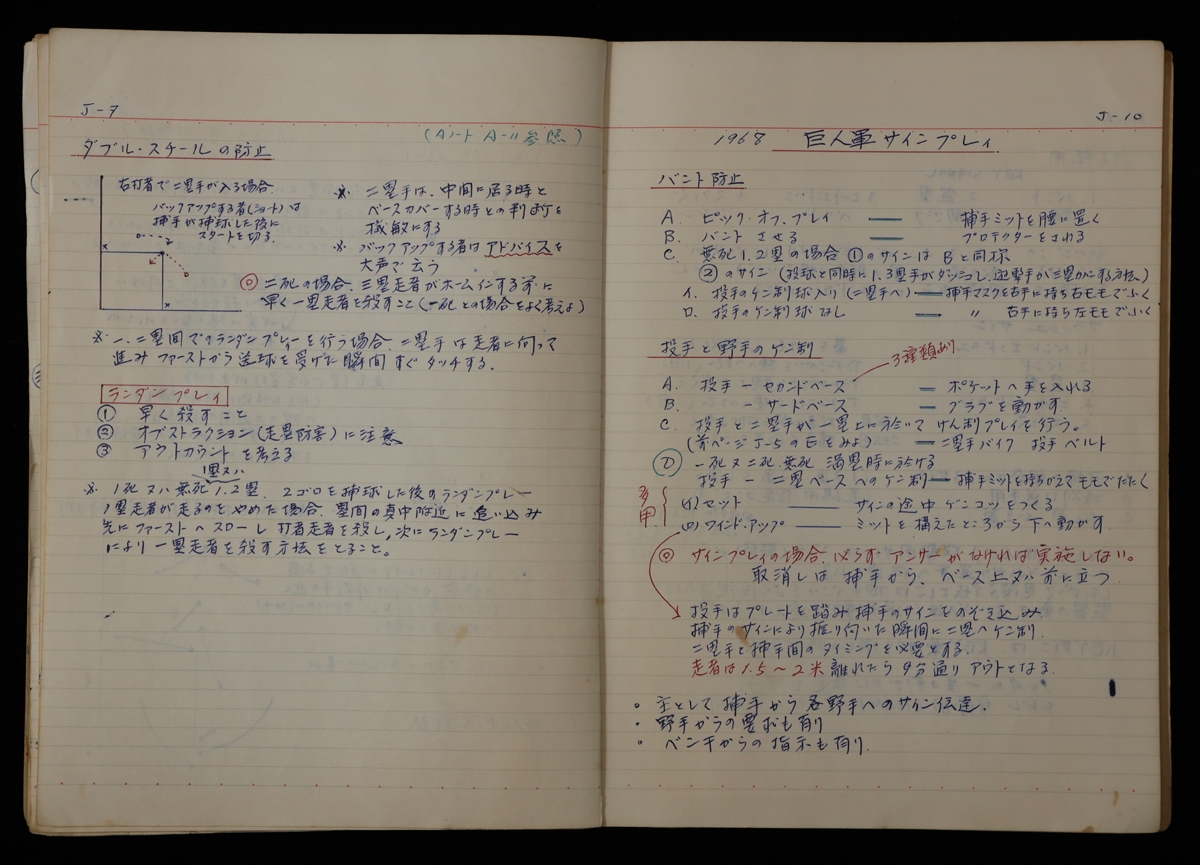 J-9
(Aノート A-11参照)
ダブル・スチールの防止
右打者で二塁手が入る場合
バックアップする者(ショート)は
捕手が捕球した後に
スタートを切る.
※ 二塁手は、中間に居る時と
ベースカバーする時との判断を
機敏にする
※ バックアップする者はアドバイスを
大声で云う
◎ 二死の場合、三塁走者がホームインする前に
早く一塁走者を殺すこと(一死との場合をよく考えよ)
※ 一、二塁間でのランダンプレーを行う場合 二塁手は走者に向って
進み ファーストから送球を受けた瞬間 すぐタッチする.
ランダンプレイ
① 早く殺すこと
② オブストラクション(走塁防害)に注意
③ アウトカウントを考える
1塁又ハ
※ 1死又ハ無死1.2塁、2ゴロを捕球した後のランダンプレー
1塁走者が走るのをやめた場合、塁間の真中附近に追い込み
先にファーストへスローし 打者走者を殺し、次にランダンプレー
により一塁走者を殺す方法をとること。
J-10
1968 巨人軍サインプレイ
バント防止
A. ピック・オフ・プレイ ― 捕手ミットを腰に置く
B. バントさせる ― プロテクターをさわる
C. 無死1.2塁の場合 ①のサインは Bと同様
②のサイン(投球と同時に1.3塁手がダッシュし、遊撃手が三塁カバーする方法)
イ. 投手のケン制球入り(二塁手へ) ― 捕手マスクを右手に持ち右モモでふく
ロ. 投手のケン制球なし ― 〃 右手に持ち左モモでふく
投手と野手のケン制
3種類あり
A. 投手 - セカンドベース ― ポケットへ手を入れる
B. - サードベース ― グラブを動かす
C. 投手と二塁手が一塁上に於いて けん制プレイを行う。
(前ページJ-5のEをみよ) ― 二塁手バイク 投手ベルト
D 一死又ニ死、無死 満塁時に於ける
投手 - 二塁ベースへのケン制 ― 捕手ミットを持ちかえてモモでたたく
多用
(イ)セット ― サインの途中ゲンコツをつくる
(ロ)ワインド・アップ ― ミットを構えたところから下へ動かす
◎ サインプレイの場合、必らずアンサーがなければ実施しない。
取消しは 捕手から、ベース上又ハ前に立つ
投手はプレートを踏み捕手のサインをのぞき込み
捕手のサインにより振り付いた瞬間に二塁へケン制.
二塁手と捕手間のタイミングを必要とする.
走者は1.5〜2米 離れたら9分通りアウトとなる.
○ 主として捕手から各野手へのサイン伝達.
○ 野手からの要求も有り
○ ベンチからの指示も有り.